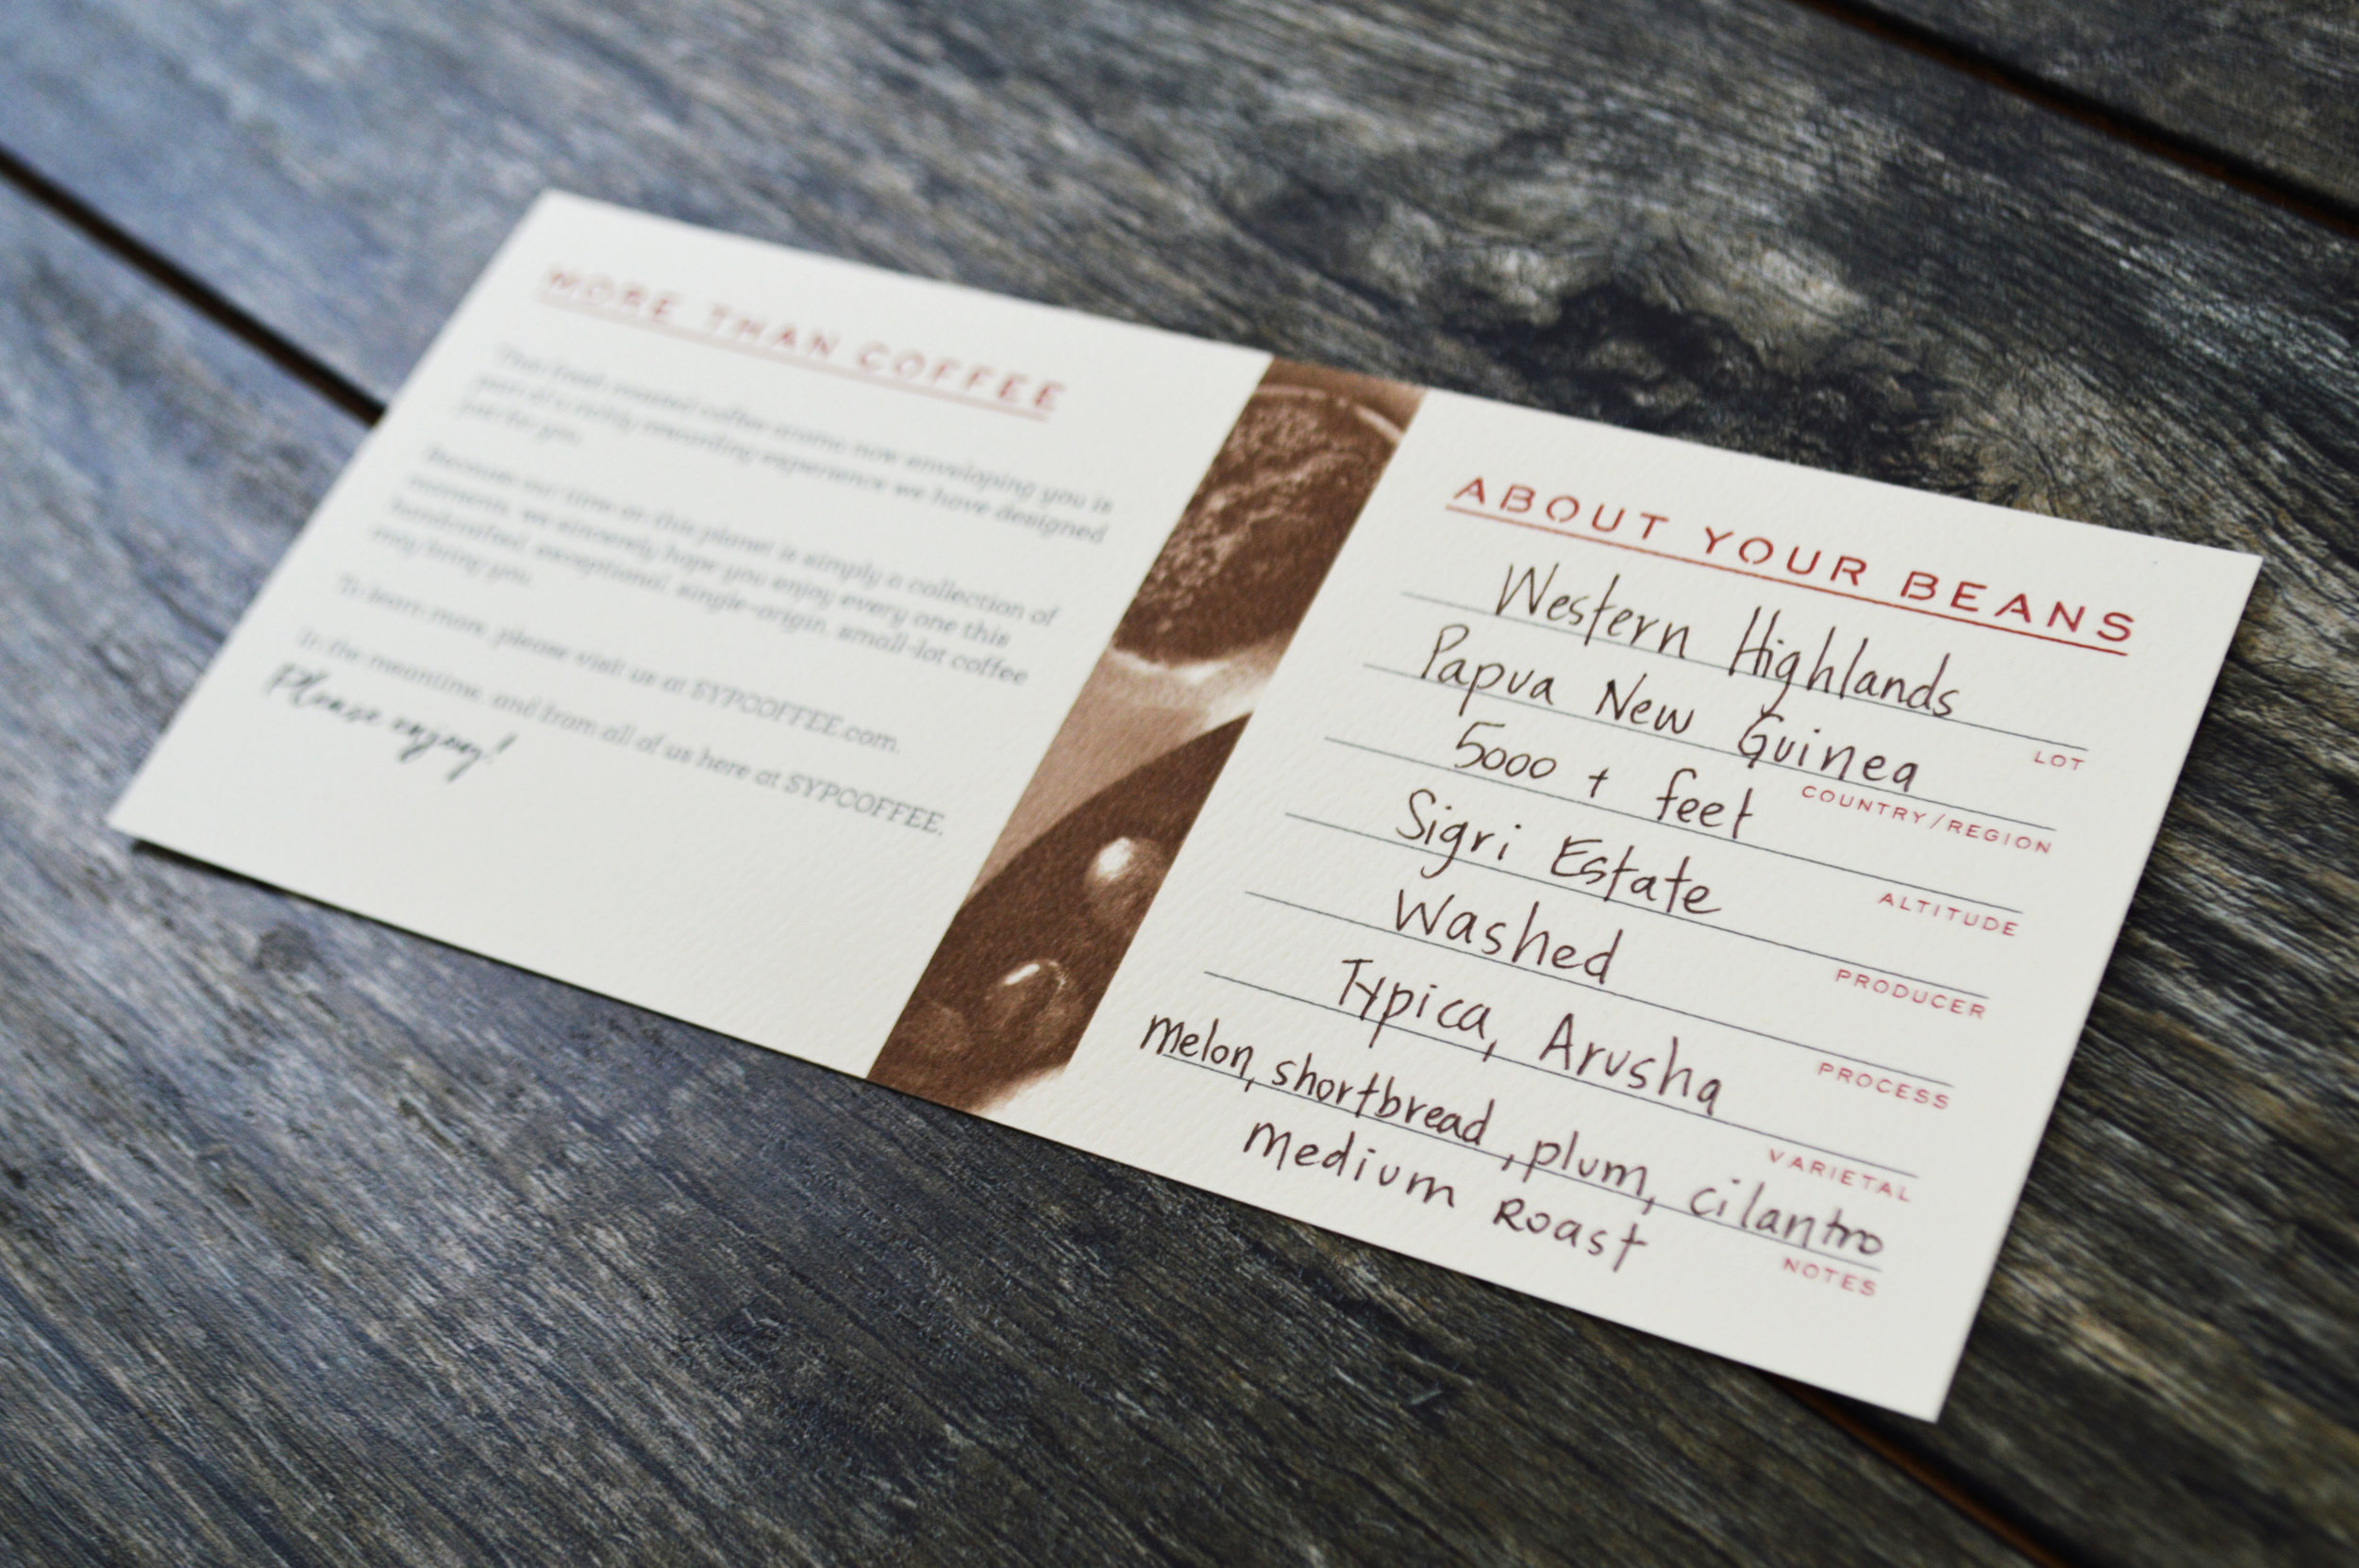 MORE THAN COFFEE
That fresh roasted coffee aroma now enveloping you is
part of a richly rewarding experience we have designed
just for you.
Because our time on this planet is simply a collection of
moments, we sincerely hope you enjoy every one this
handcrafted, exceptional, single-origin, small-lot coffee
may bring you.
To learn more, please visit us at SYPCOFFEE.com.
In the meantime, and from all of us here at SYPCOFFEE,
Please enjoy!
ABOUT YOUR BEANS
Western Highlands
LOT
Papua New Guinea
COUNTRY/REGION
5000 + feet
ALTITUDE
Sigri Estate
PRODUCER
Washed
PROCESS
Typica, Arusha
VARIETAL
Melon, shortbread, plum, cilantro
NOTES
Medium Roast